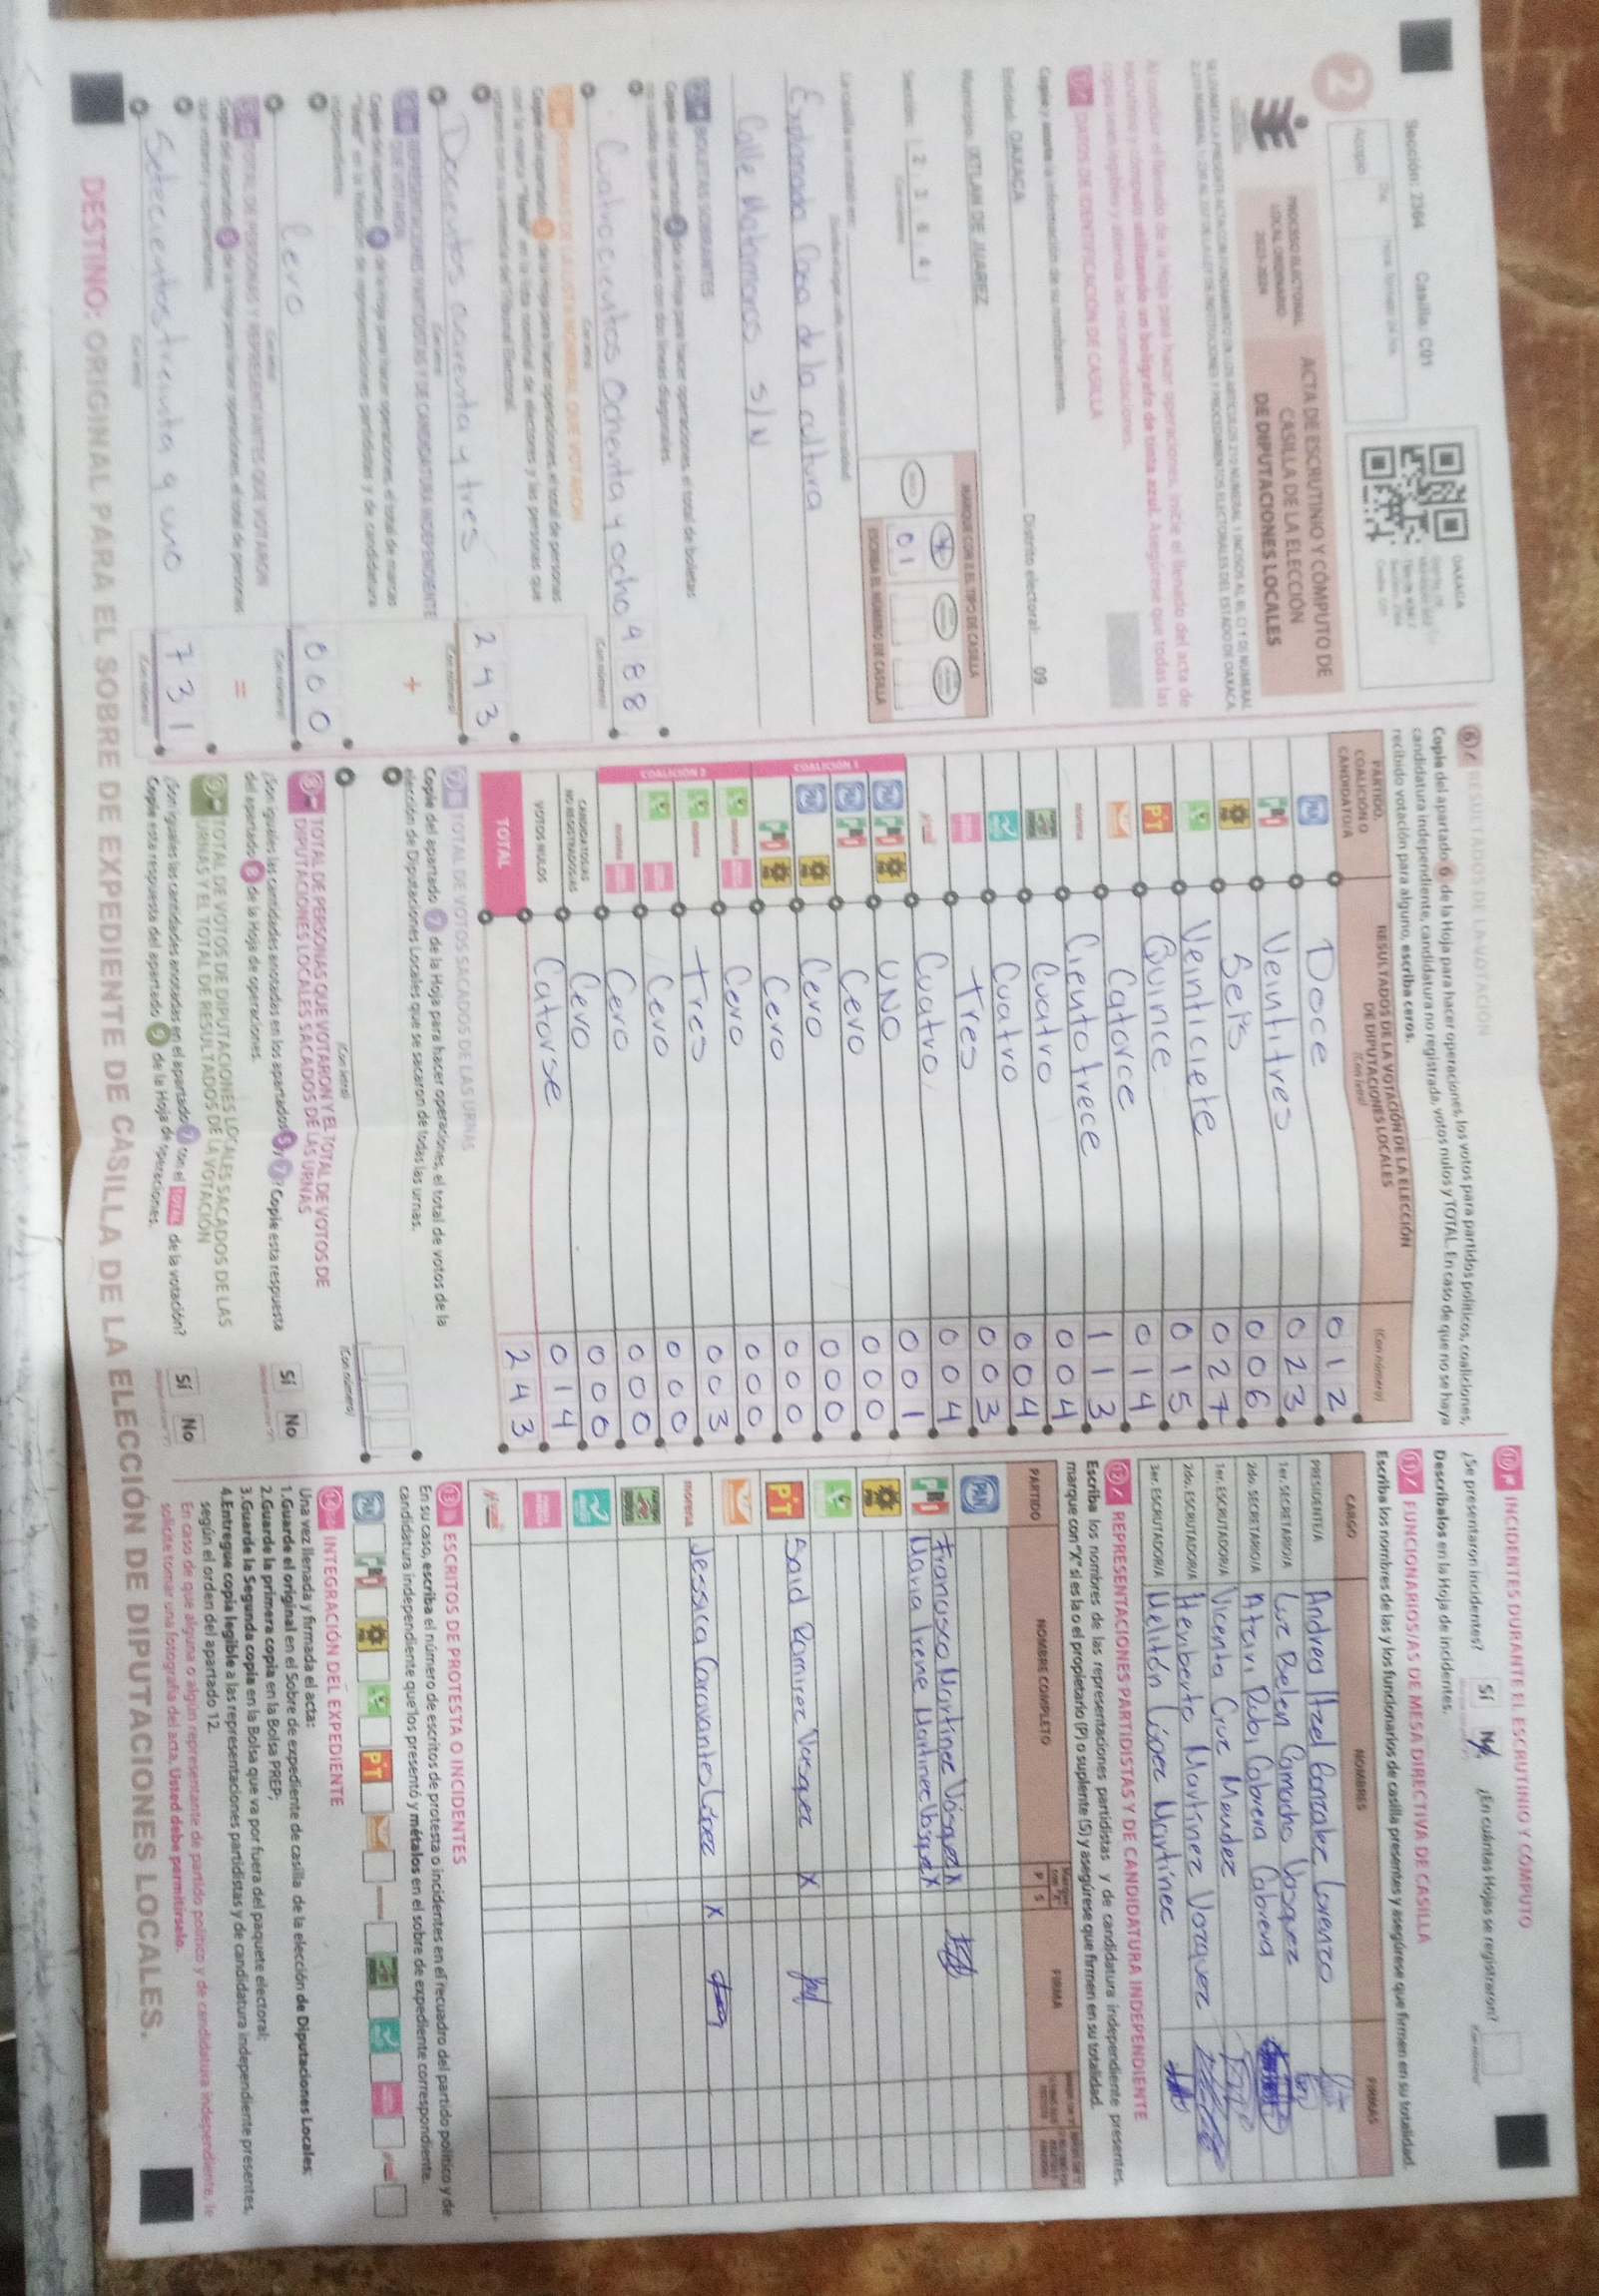 Sección: 2364 Casilla: C01
OAXACA
2
PROCESO ELECTORAL LOCAL ORDINARIO 2023-2024
ACTA DE ESCRUTINIO Y CÓMPUTO DE
CASILLA DE LA ELECCIÓN
DE DIPUTACIONES LOCALES
DATOS DE IDENTIFICACIÓN DE CASILLA
Copie y anote la información de su nombramiento.
Entidad: OAXACA Distrito electoral: 09
Municipio: IXTLAN DE JUAREZ
Sección: 2 3 6 4
MARQUE CON X EL TIPO DE CASILLA
ESCRIBA EL NÚMERO DE CASILLA
0 1
La casilla se instaló en:
Explanada Casa de la cultura
Calle Matamoros S/N
BOLETAS SOBRANTES
Cuatrocientos Ochenta y ocho 488
PERSONAS DE LA LISTA NOMINAL QUE VOTARON
Doscientos cuarenta y tres 243
+
REPRESENTACIONES PARTIDISTAS Y DE CANDIDATURA INDEPENDIENTE QUE VOTARON
Cero 000
=
TOTAL DE PERSONAS Y REPRESENTANTES QUE VOTARON
Setecientos treinta y uno 731
6 RESULTADOS DE LA VOTACIÓN
Copie del apartado 6 de la Hoja para hacer operaciones, los votos para partidos políticos, coaliciones,
candidatura independiente, candidatura no registrada, votos nulos y TOTAL. En caso de que no se haya
recibido votación para alguno, escriba ceros.
PARTIDO, COALICIÓN O CANDIDATO/A
RESULTADOS DE LA VOTACIÓN DE LA ELECCIÓN DE DIPUTACIONES LOCALES
(Con letra) (Con número)
PAN Doce 012
PRI Veintitres 023
PRD Seis 006
Veinticiete 027
PT Quince 015
Catorce 014
morena Ciento trece 113
Cuatro 004
Cuatro 004
Tres 003
Cuatro 004
COALICIÓN 1
PAN PRI PRD UNO 001
PAN PRI Cero 000
PAN PRD Cero 000
PRI PRD Cero 000
COALICIÓN 2
morena Cero 000
morena Tres 003
Cero 000
morena Cero 000
CANDIDATOS/AS NO REGISTRADOS/AS Cero 000
VOTOS NULOS Catorse 014
TOTAL 243
7 TOTAL DE VOTOS SACADOS DE LAS URNAS
Copie del apartado 7 de la Hoja para hacer operaciones, el total de votos de la
elección de Diputaciones Locales que se sacaron de todas las urnas.
(Con letra) (Con número)
8 TOTAL DE PERSONAS QUE VOTARON Y EL TOTAL DE VOTOS DE
DIPUTACIONES LOCALES SACADOS DE LAS URNAS
¿Son iguales las cantidades anotadas en los apartados 5 y 7? Copie esta respuesta
del apartado 8 de la Hoja de operaciones.
Sí No
9 TOTAL DE VOTOS DE DIPUTACIONES LOCALES SACADOS DE LAS
URNAS Y EL TOTAL DE RESULTADOS DE LA VOTACIÓN
¿Son iguales las cantidades anotadas en el apartado 7 con el TOTAL de la votación?
Copie esta respuesta del apartado 9 de la Hoja de operaciones.
Sí No
10 INCIDENTES DURANTE EL ESCRUTINIO Y CÓMPUTO
¿Se presentaron incidentes? Sí No ¿En cuántas Hojas se registraron?
Descríbalos en la Hoja de incidentes.
11 FUNCIONARIOS/AS DE MESA DIRECTIVA DE CASILLA
Escriba los nombres de las y los funcionarios de casilla presentes y asegúrese que firmen en su totalidad.
CARGO NOMBRES FIRMAS
PRESIDENTE/A Andrea Itzel Gonzalez Lorenzo
1er. SECRETARIO/A Luz Belen Camacho Vasquez
2do. SECRETARIO/A Atziri Rubi Cabrera Cabrera
1er. ESCRUTADOR/A Vicenta Cruz Mendez
2do. ESCRUTADOR/A Heriberto Martinez Vazquez
3er. ESCRUTADOR/A Melitón López Martínez
12 REPRESENTACIONES PARTIDISTAS Y DE CANDIDATURA INDEPENDIENTE
Escriba los nombres de las representaciones partidistas y de candidatura independiente presentes,
marque con "X" si es la o el propietario (P) o suplente (S) y asegúrese que firmen en su totalidad.
PARTIDO NOMBRE COMPLETO P S FIRMA
PAN
PRI Francisco Martinez Vásquez X
Maria Irene Martinez Vásquez X
PRD
PT Said Ramirez Vasquez X
morena Jessica Caravantes López X
13 ESCRITOS DE PROTESTA O INCIDENTES
En su caso, escriba el número de escritos de protesta o incidentes en el recuadro del partido político y de
candidatura independiente que los presentó y métalos en el sobre de expediente correspondiente.
PAN PRI PRD PT morena
14 INTEGRACIÓN DEL EXPEDIENTE
Una vez llenada y firmada el acta:
1.Guarde el original en el Sobre de expediente de casilla de la elección de Diputaciones Locales;
2.Guarde la primera copia en la Bolsa PREP;
3.Guarde la Segunda copia en la Bolsa que va por fuera del paquete electoral;
4.Entregue copia legible a las representaciones partidistas y de candidatura independiente presentes,
según el orden del apartado 12.
En caso de que alguna o algún representante de partido político y de candidatura independiente, le
solicite tomar una fotografía del acta, Usted debe permitírselo.
DESTINO: ORIGINAL PARA EL SOBRE DE EXPEDIENTE DE CASILLA DE LA ELECCIÓN DE DIPUTACIONES LOCALES.